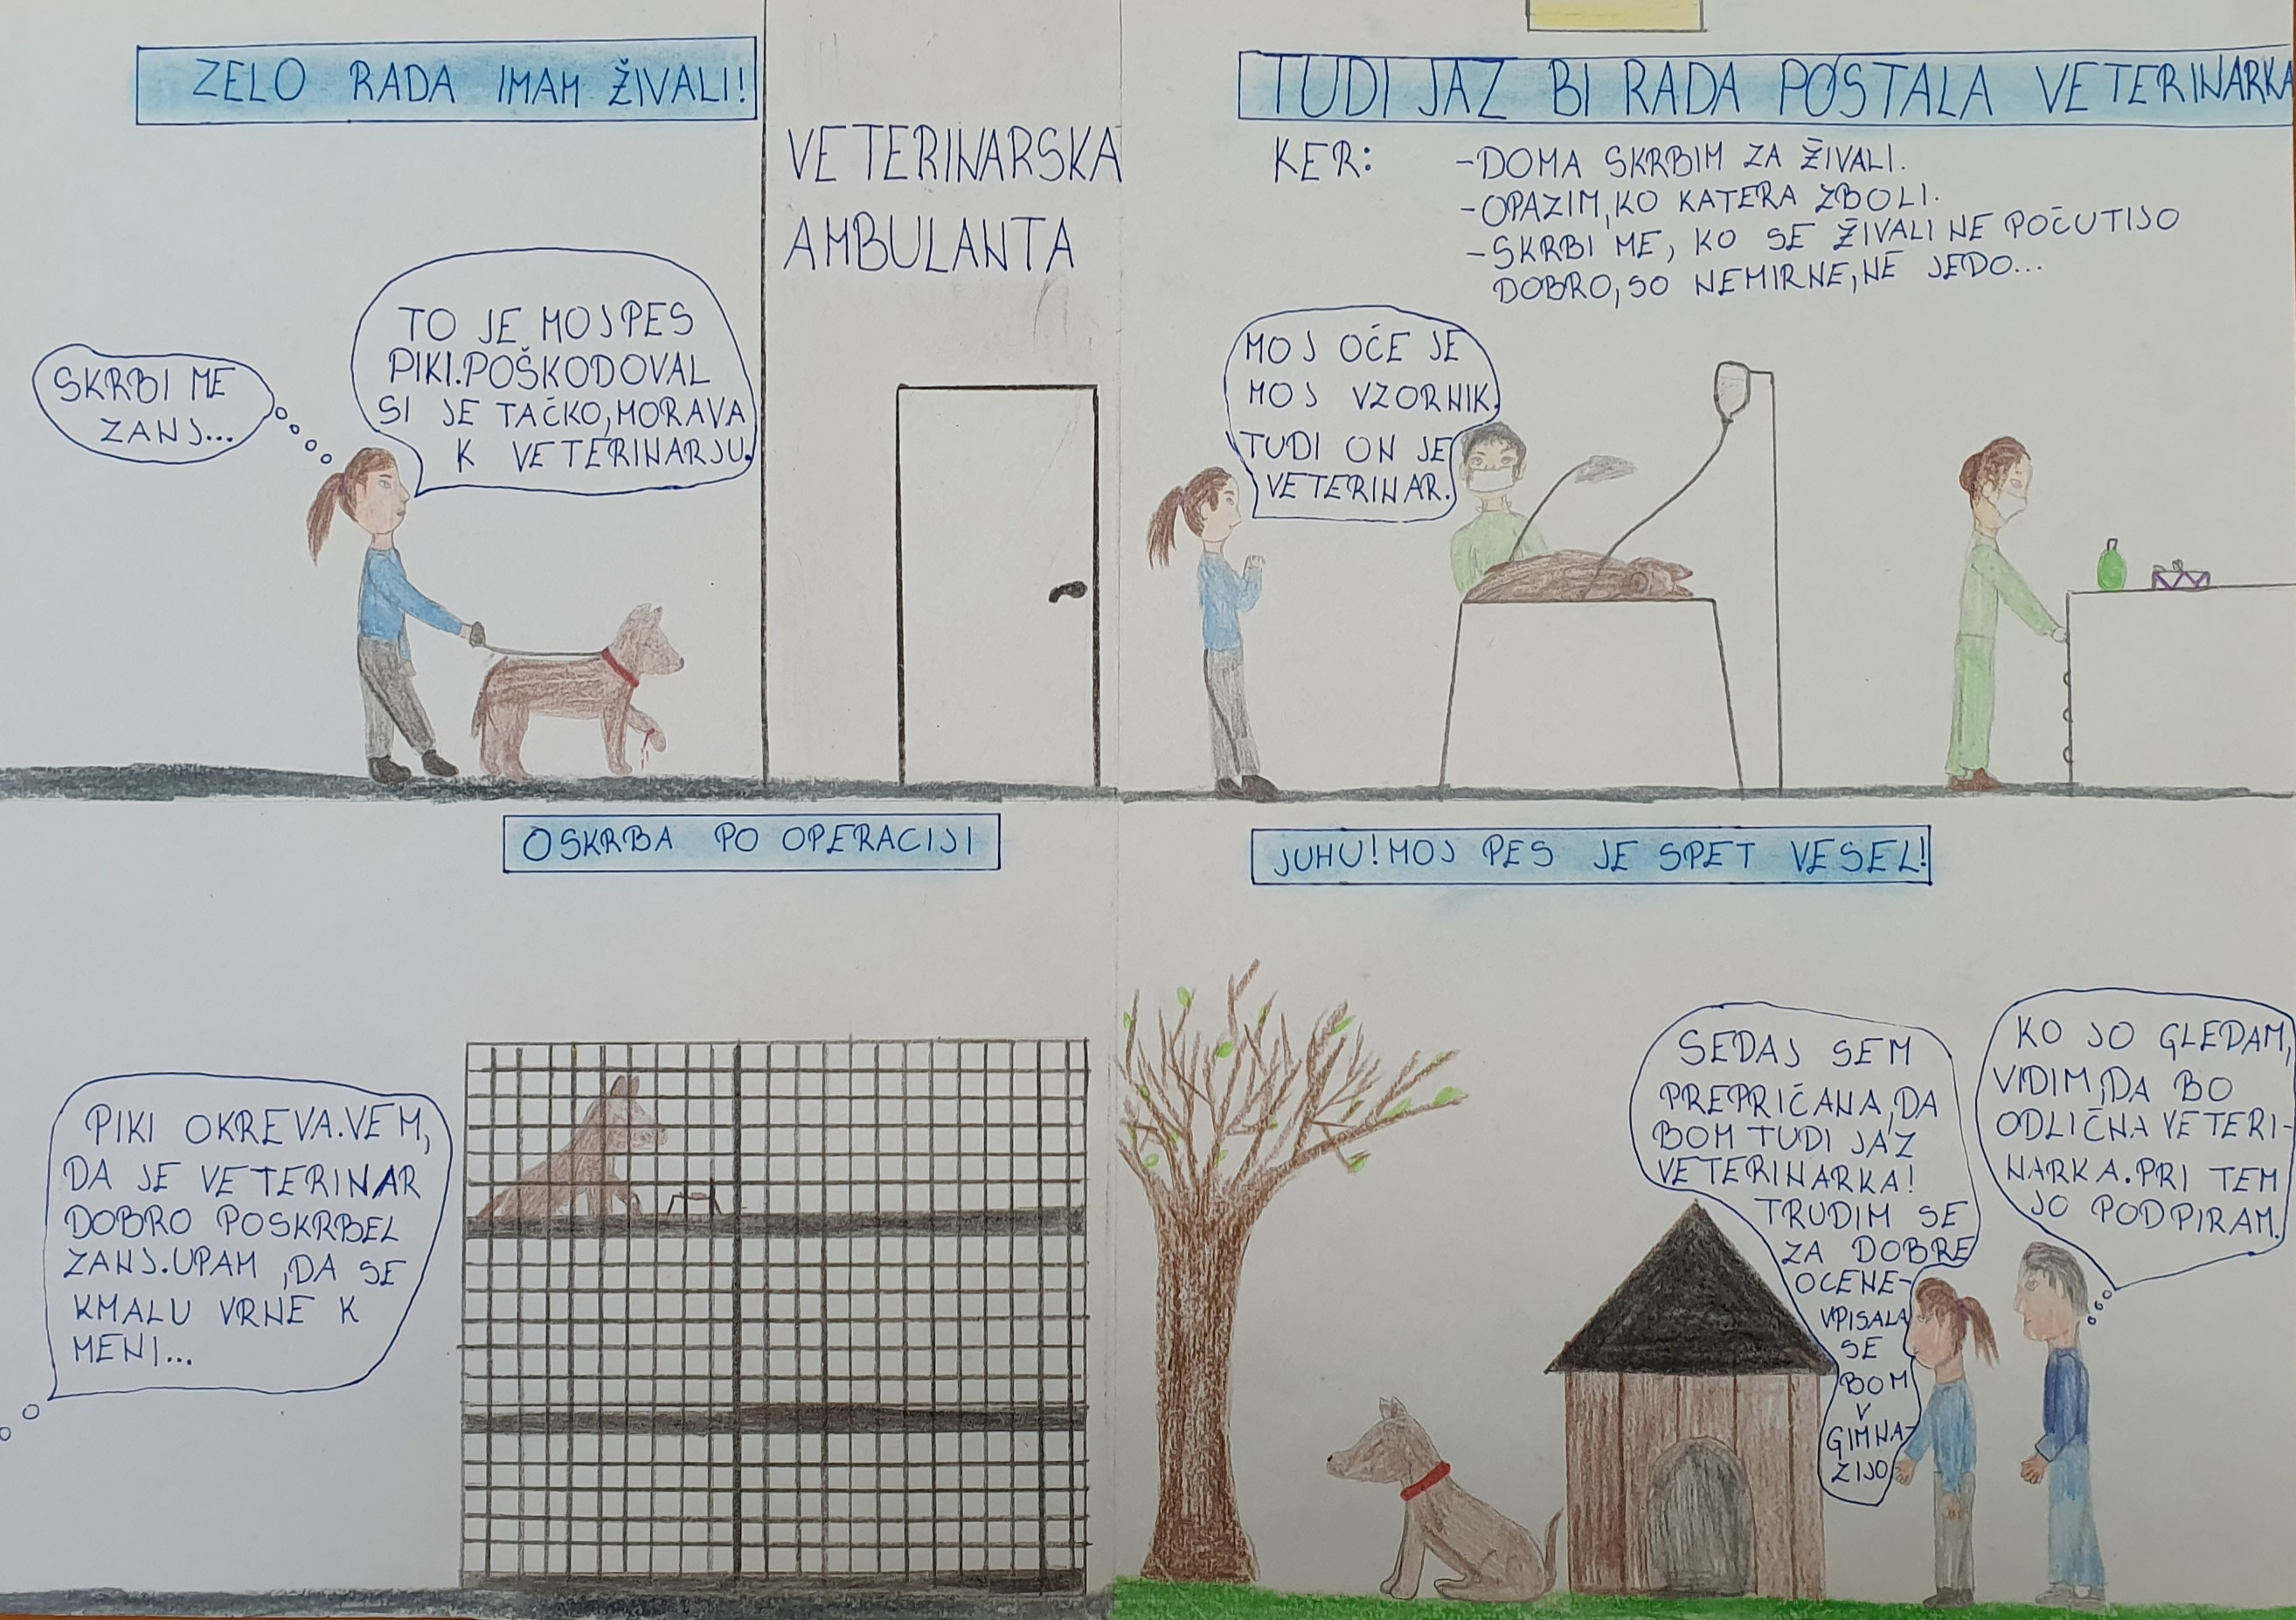 ZELO RADA IMAM ŽIVALI!
SKRBI ME
ZANJ...
TO JE MOJ PES
PIKI.POŠKODOVAL
SI JE TAČKO,MORAVA
K VETERINARJU.
VETERINARSKA
AMBULANTA
TUDI JAZ BI RADA POSTALA VETERINARKA
KER:
-DOMA SKRBIM ZA ŽIVALI.
-OPAZIM,KO KATERA ZBOLI.
-SKRBI ME, KO SE ŽIVALI NE POČUTIJO
DOBRO,SO NEMIRNE,NE JEDO...
MOJ OČE JE
MOJ VZORNIK.
TUDI ON JE
VETERINAR.
OSKRBA PO OPERACIJI
PIKI OKREVA.VEM,
DA JE VETERINAR
DOBRO POSKRBEL
ZANJ.UPAM ,DA SE
KMALU VRNE K
MENI...
JUHU!MOJ PES JE SPET VESEL!
SEDAJ SEM
PREPRIČANA,DA
BOM TUDI JAZ
VETERINARKA!
TRUDIM SE
ZA DOBRE
OCENE-
VPISALA
SE
BOM
V
GIMNA-
ZIJO
KO JO GLEDAM,
VIDIM,DA BO
ODLIČNA VETERI-
NARKA.PRI TEM
JO PODPIRAM.